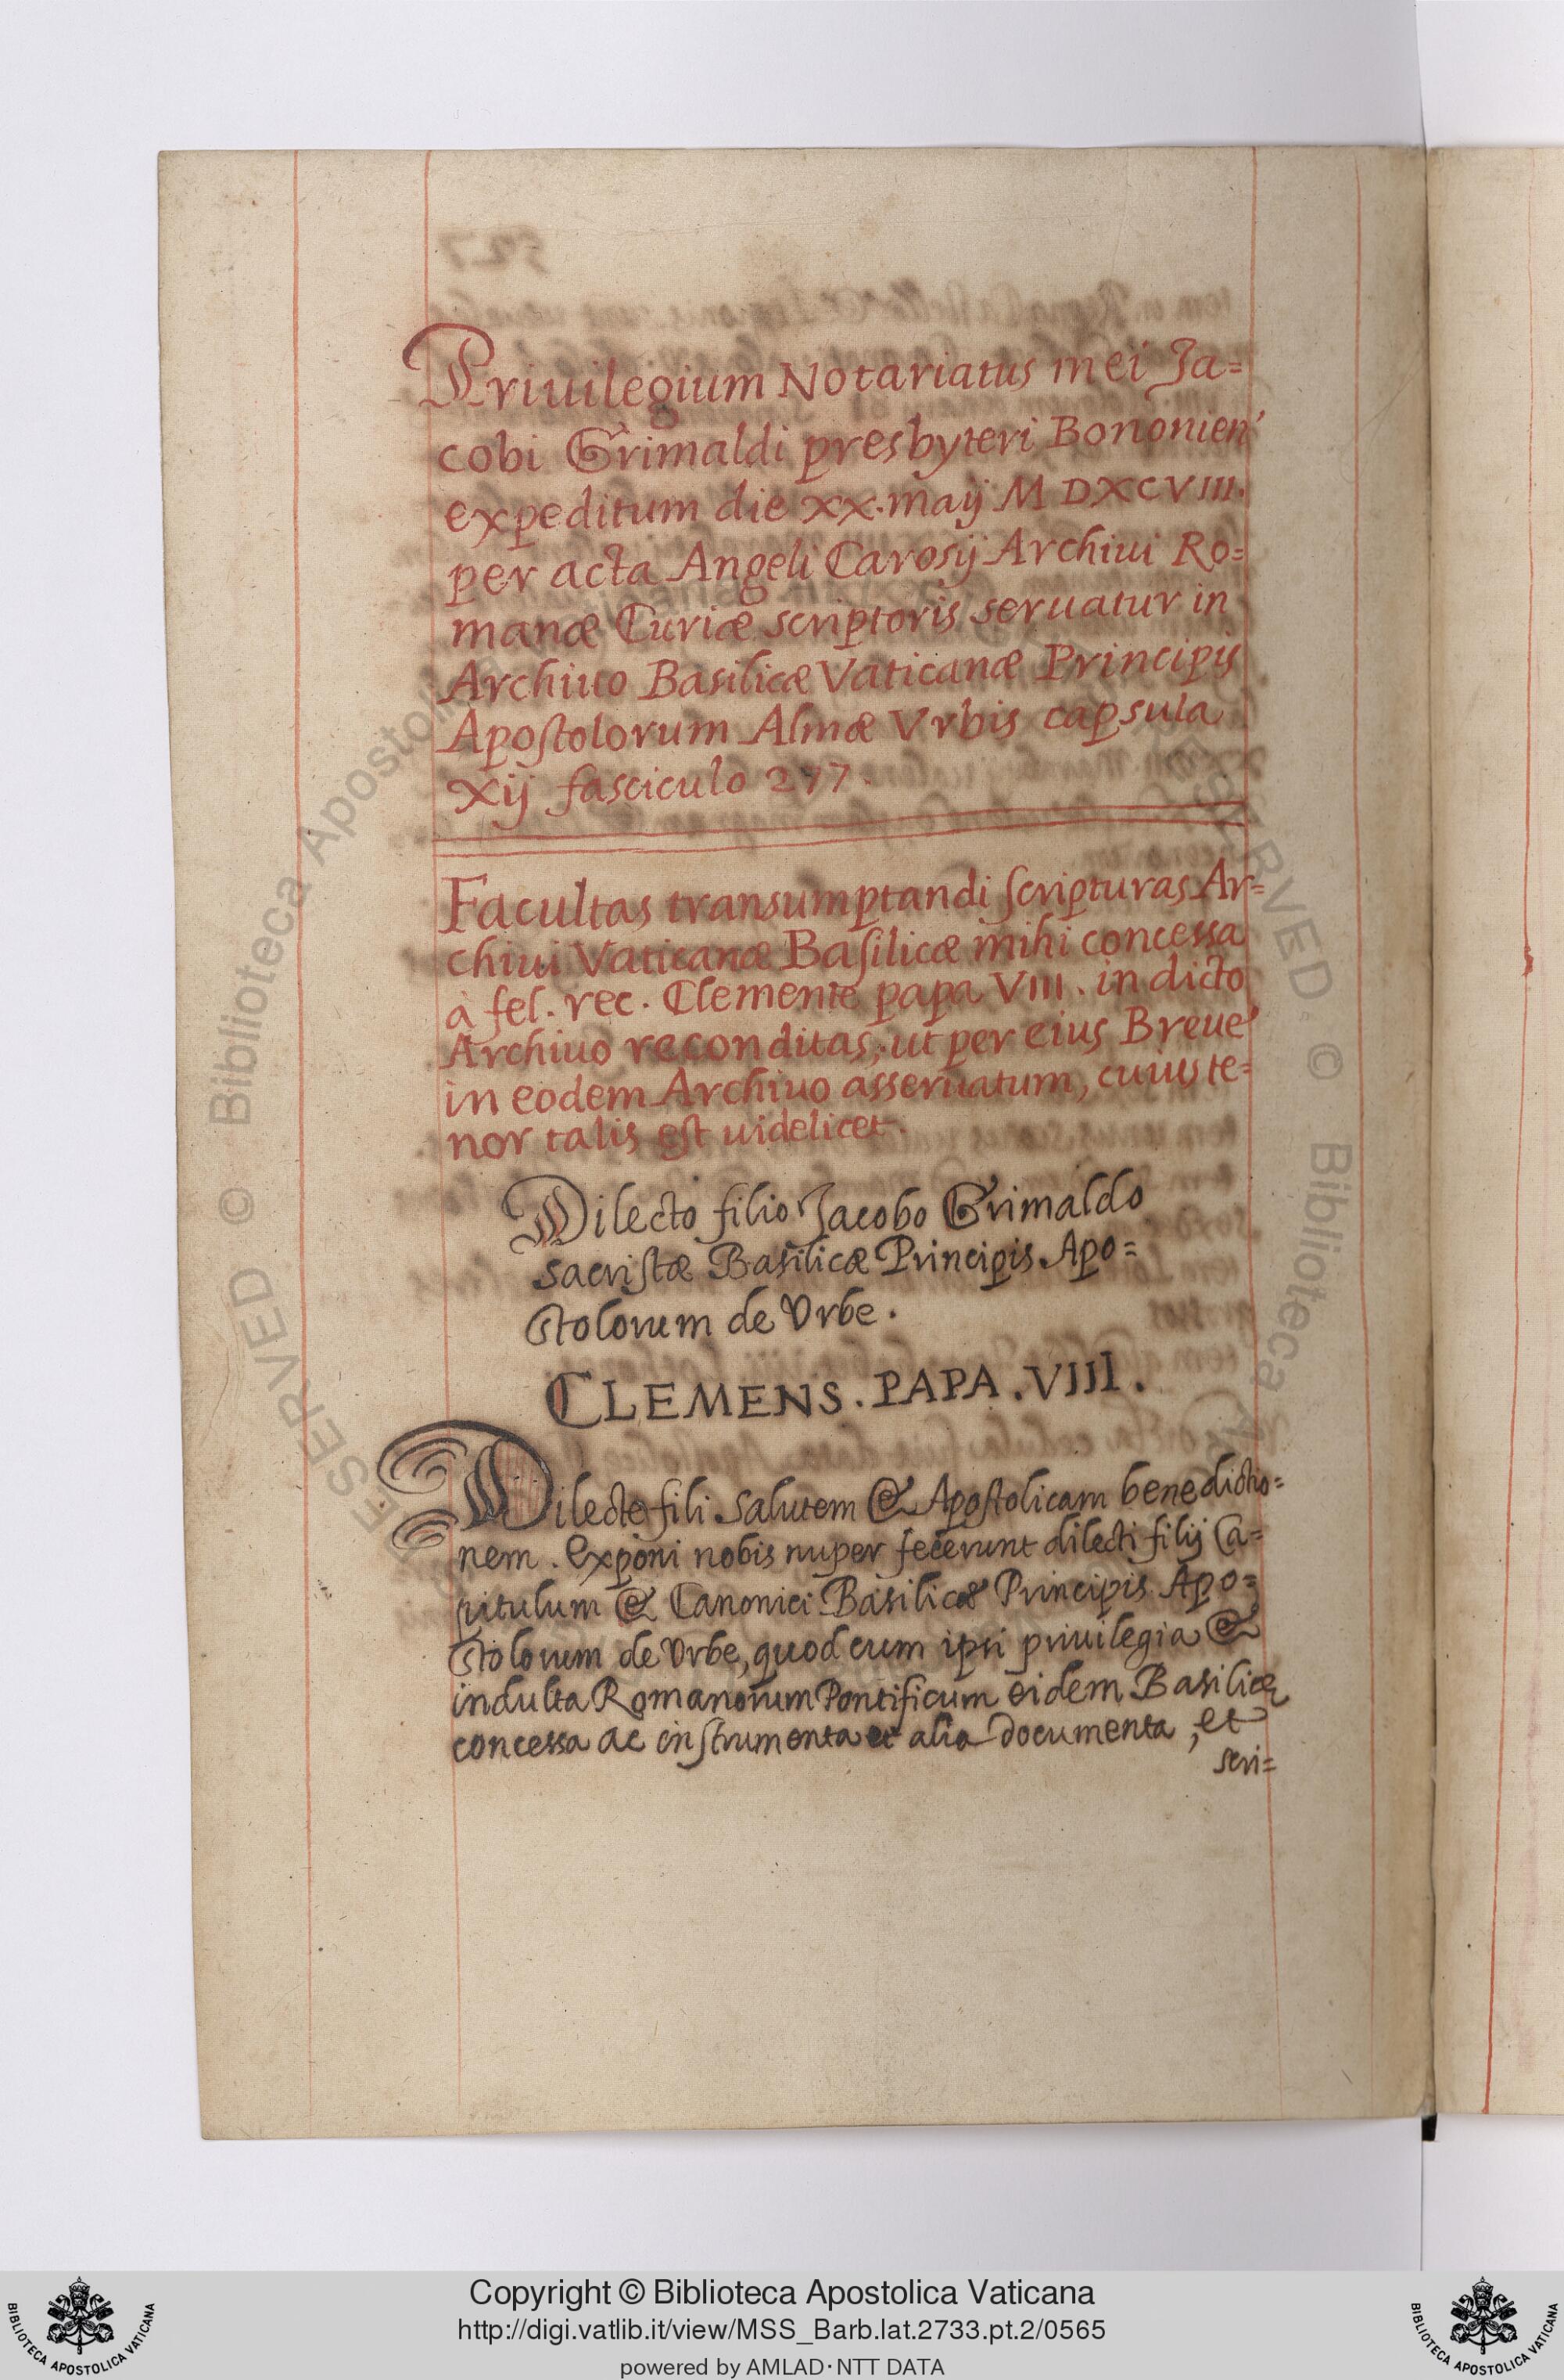 Priuilegium Notariatus mei Ja=
cobi Grimaldi presbyteri Bononien'
expeditum die xx. maij MDXCVIII.
per acta Angeli Carosij Archiui Ro=
manæ Curiæ scriptoris seruatur in
Archiuo Basilicæ Vaticanæ Principis
Apostolorum Almæ Vrbis capsula
Xij fasciculo 277.
Facultas transumptandi scripturas Ar=
chiui Vaticanæ Basilicæ mihi concessa
à fel. rec. Clemente papa VIII. in dicto
Archiuo reconditas, ut per eius Breue
in eodem Archiuo asseruatum, cuius te=
nor talis est uidelicet.
Dilecto filio Jacobo Grimaldo
sacristæ Basilicæ Principis Apo=
stolorum de Vrbe.
CLEMENS. PAPA. VIII.
Dilecte fili salutem & Apostolicam benedictio=
nem. Exponi nobis nuper fecerunt dilecti filij Ca=
pitulum & Canonici Basilicæ Principis Apo=
stolorum de Vrbe, quod cum ipsi priuilegia &
indulta Romanorum Pontificum eidem Basilicæ
concessa ac instrumenta et alia documenta, et
scri=
Copyright © Biblioteca Apostolica Vaticana
http://digi.vatlib.it/view/MSS_Barb.lat.2733.pt.2/0565
powered by AMLAD·NTT DATA
BIBLIOTECA APOSTOLICA VATICANA
BIBLIOTECA APOSTOLICA VATICANA